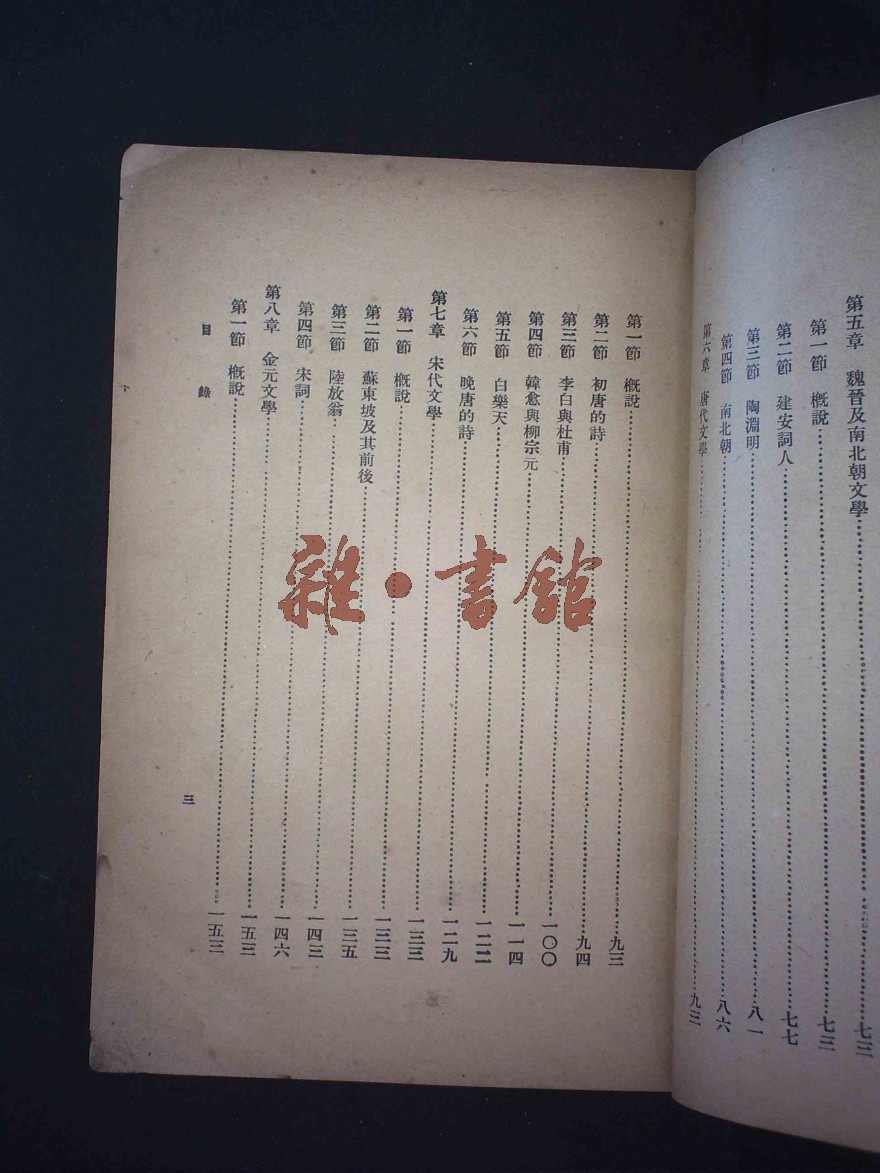 第五章 魏晉及南北朝文學……七三
第一節 槪說……七三
第二節 建安詞人……七七
第三節 陶淵明……八一
第四節 南北朝……八六
第六章 唐代文學……九三
第一節 槪說……九三
第二節 初唐的詩……九四
第三節 李白與杜甫……一〇〇
第四節 韓愈與柳宗元……一一四
第五節 白樂天……一二二
第六節 晚唐的詩……一二九
第七章 宋代文學……一三三
第一節 槪說……一三三
第二節 蘇東坡及其前後……一三五
第三節 陸放翁……一四三
第四節 宋詞……一四六
第八章 金元文學……一五三
第一節 槪說……一五三
目錄 三
雜·書館